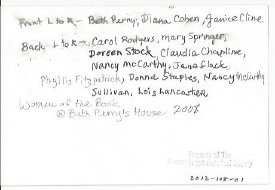 Front L to R - Beth Perry, Diana Cohen, Janice Cline
Back L to R - Carol Rodgers, Mary Springer,
Doreen Stock, Claudia Chapline,
Nancy McCarthy, Jana Slack,
Phyllis Fitzpatrick, Donna Staples, Nancy McCarthy
Sullivan, Lois Lancaster
Women of the Book 2008
@ Beth Perry's House
Property of The
2012-108-01